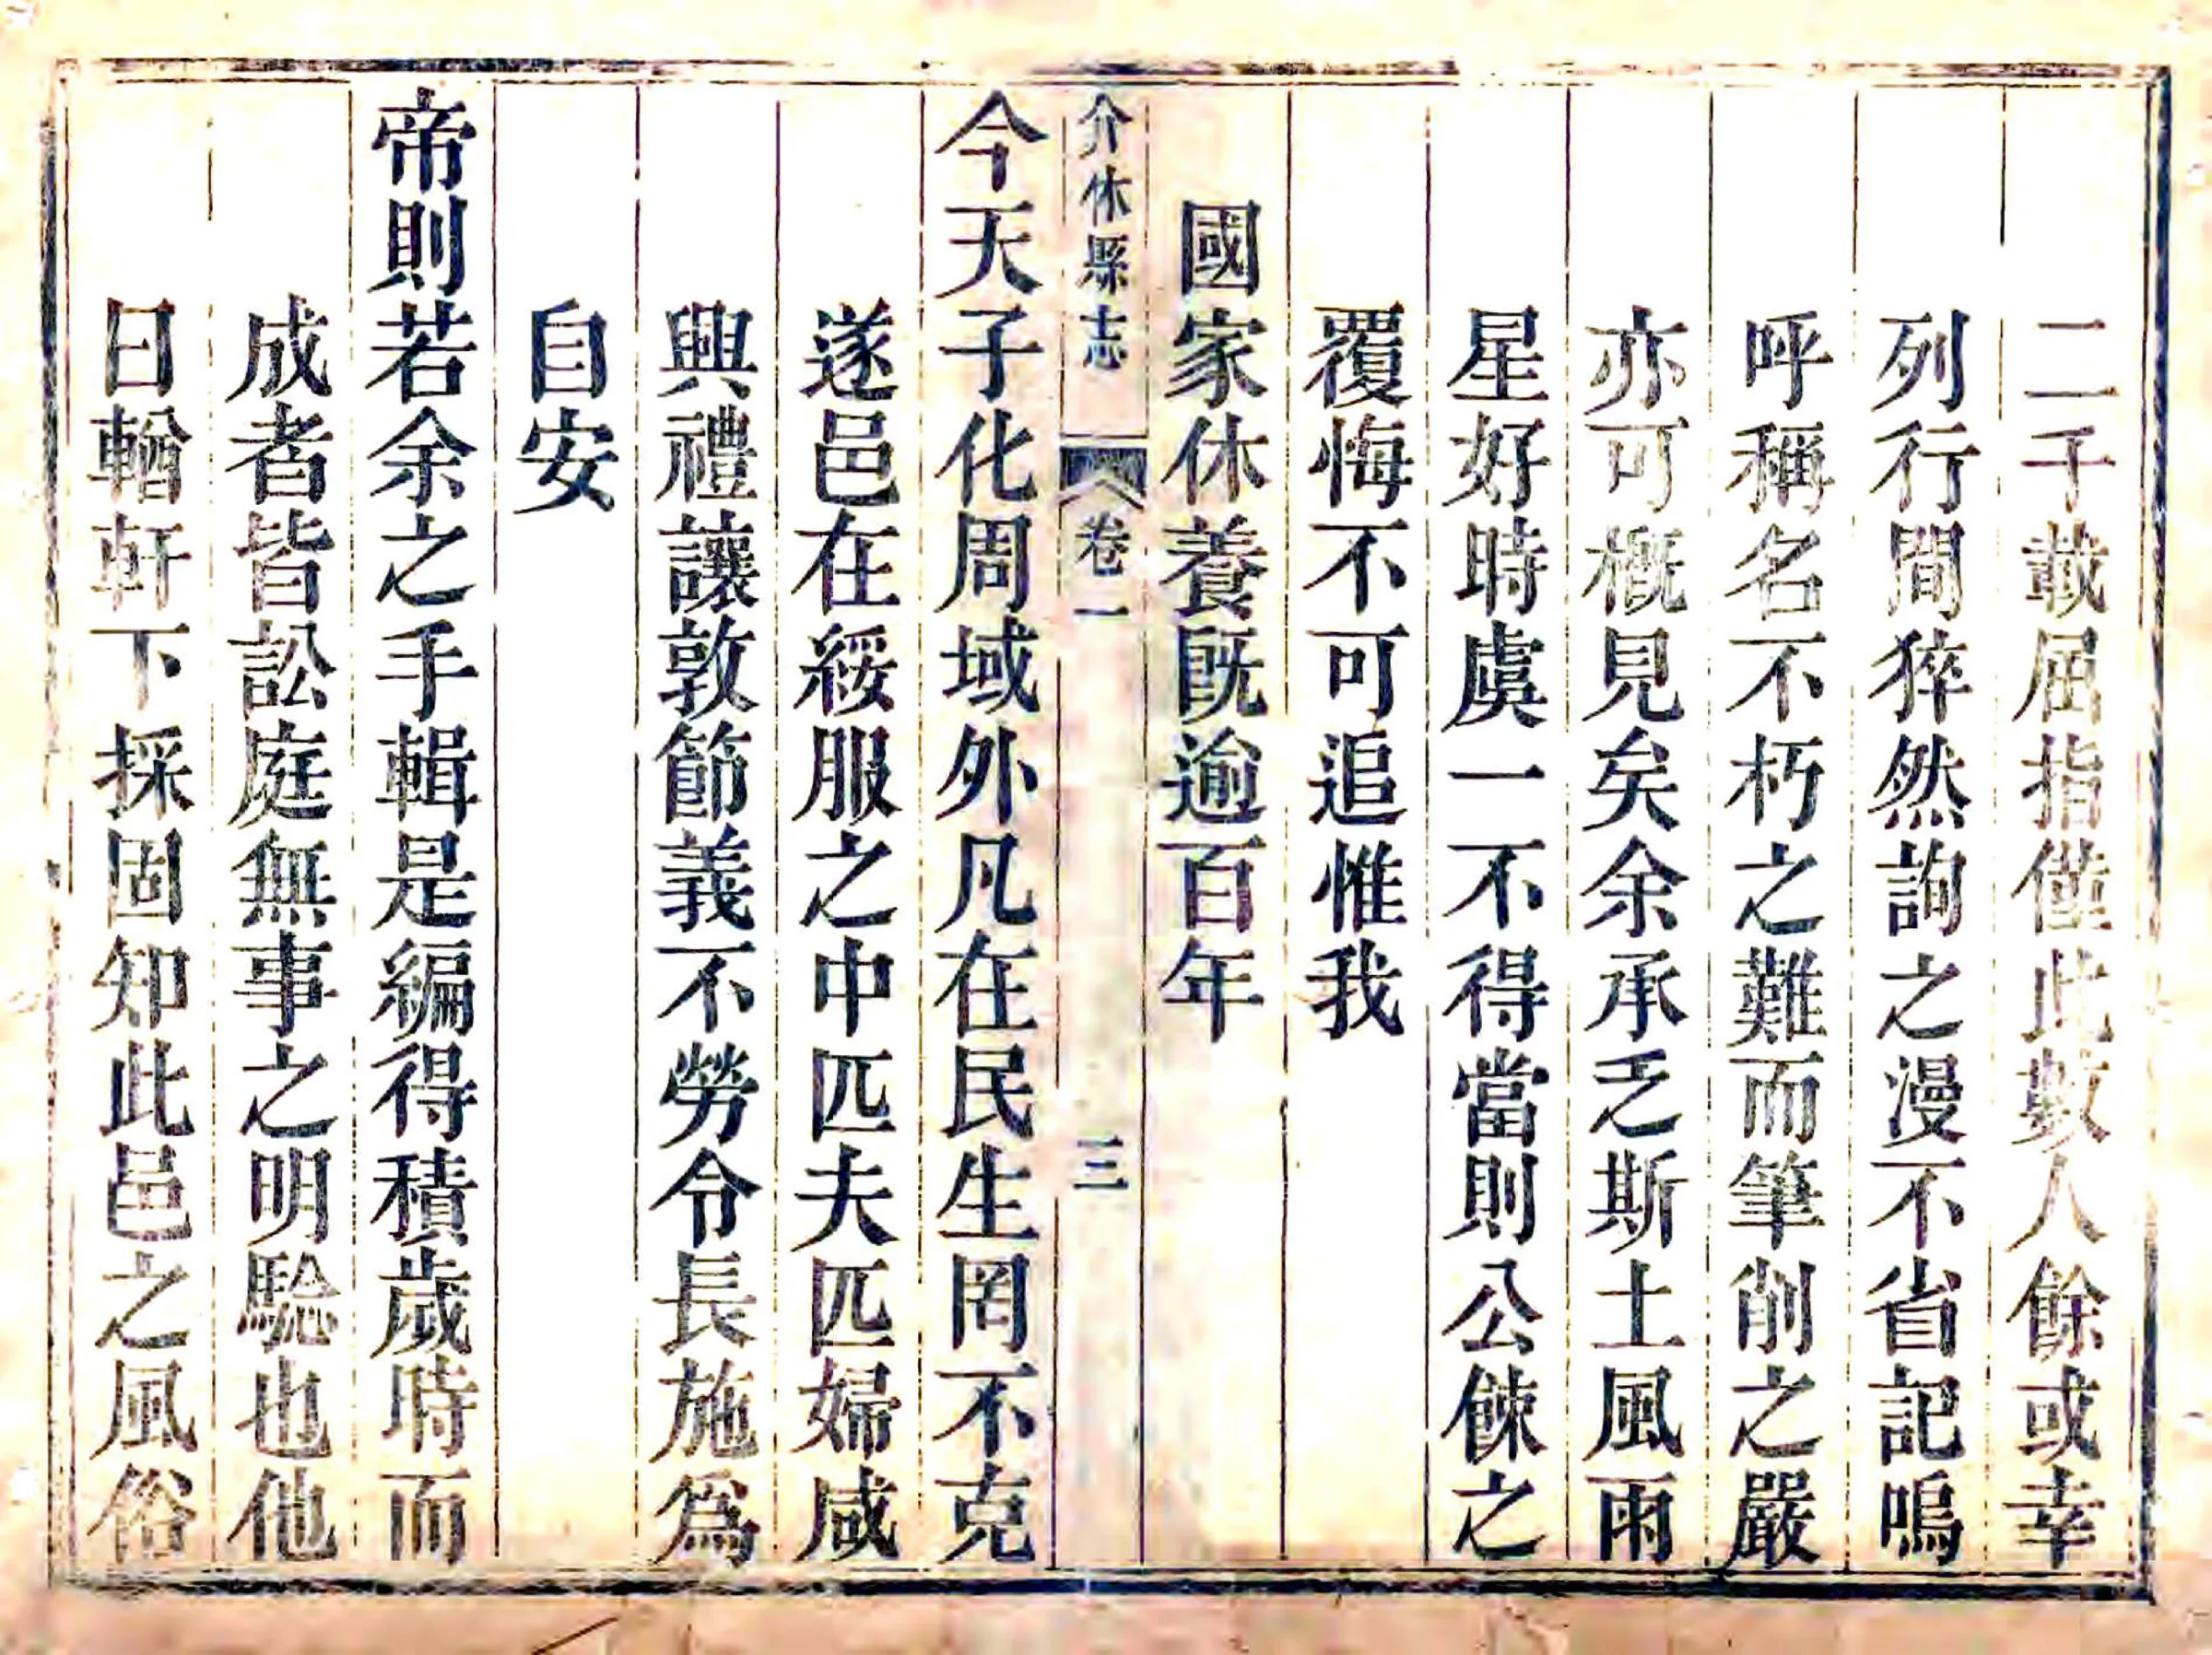 二千載屈指僅此數人餘或幸
列行間猝然詢之漫不省記嗚
呼稱名不朽之難而筆削之嚴
亦可概見矣余承乏斯土風雨
星好時虞一不得當則公餗之
覆悔不可追惟我
國家休養既逾百年
介休縣志 卷一 三
今天子化周域外凡在民生罔不克
遂邑在綏服之中匹夫匹婦咸
興禮讓敦節義不勞令長施爲
自安
帝則若余之手輯是編得積歲時而
成者皆訟庭無事之明騐也他
日輶軒下採固知此邑之風俗